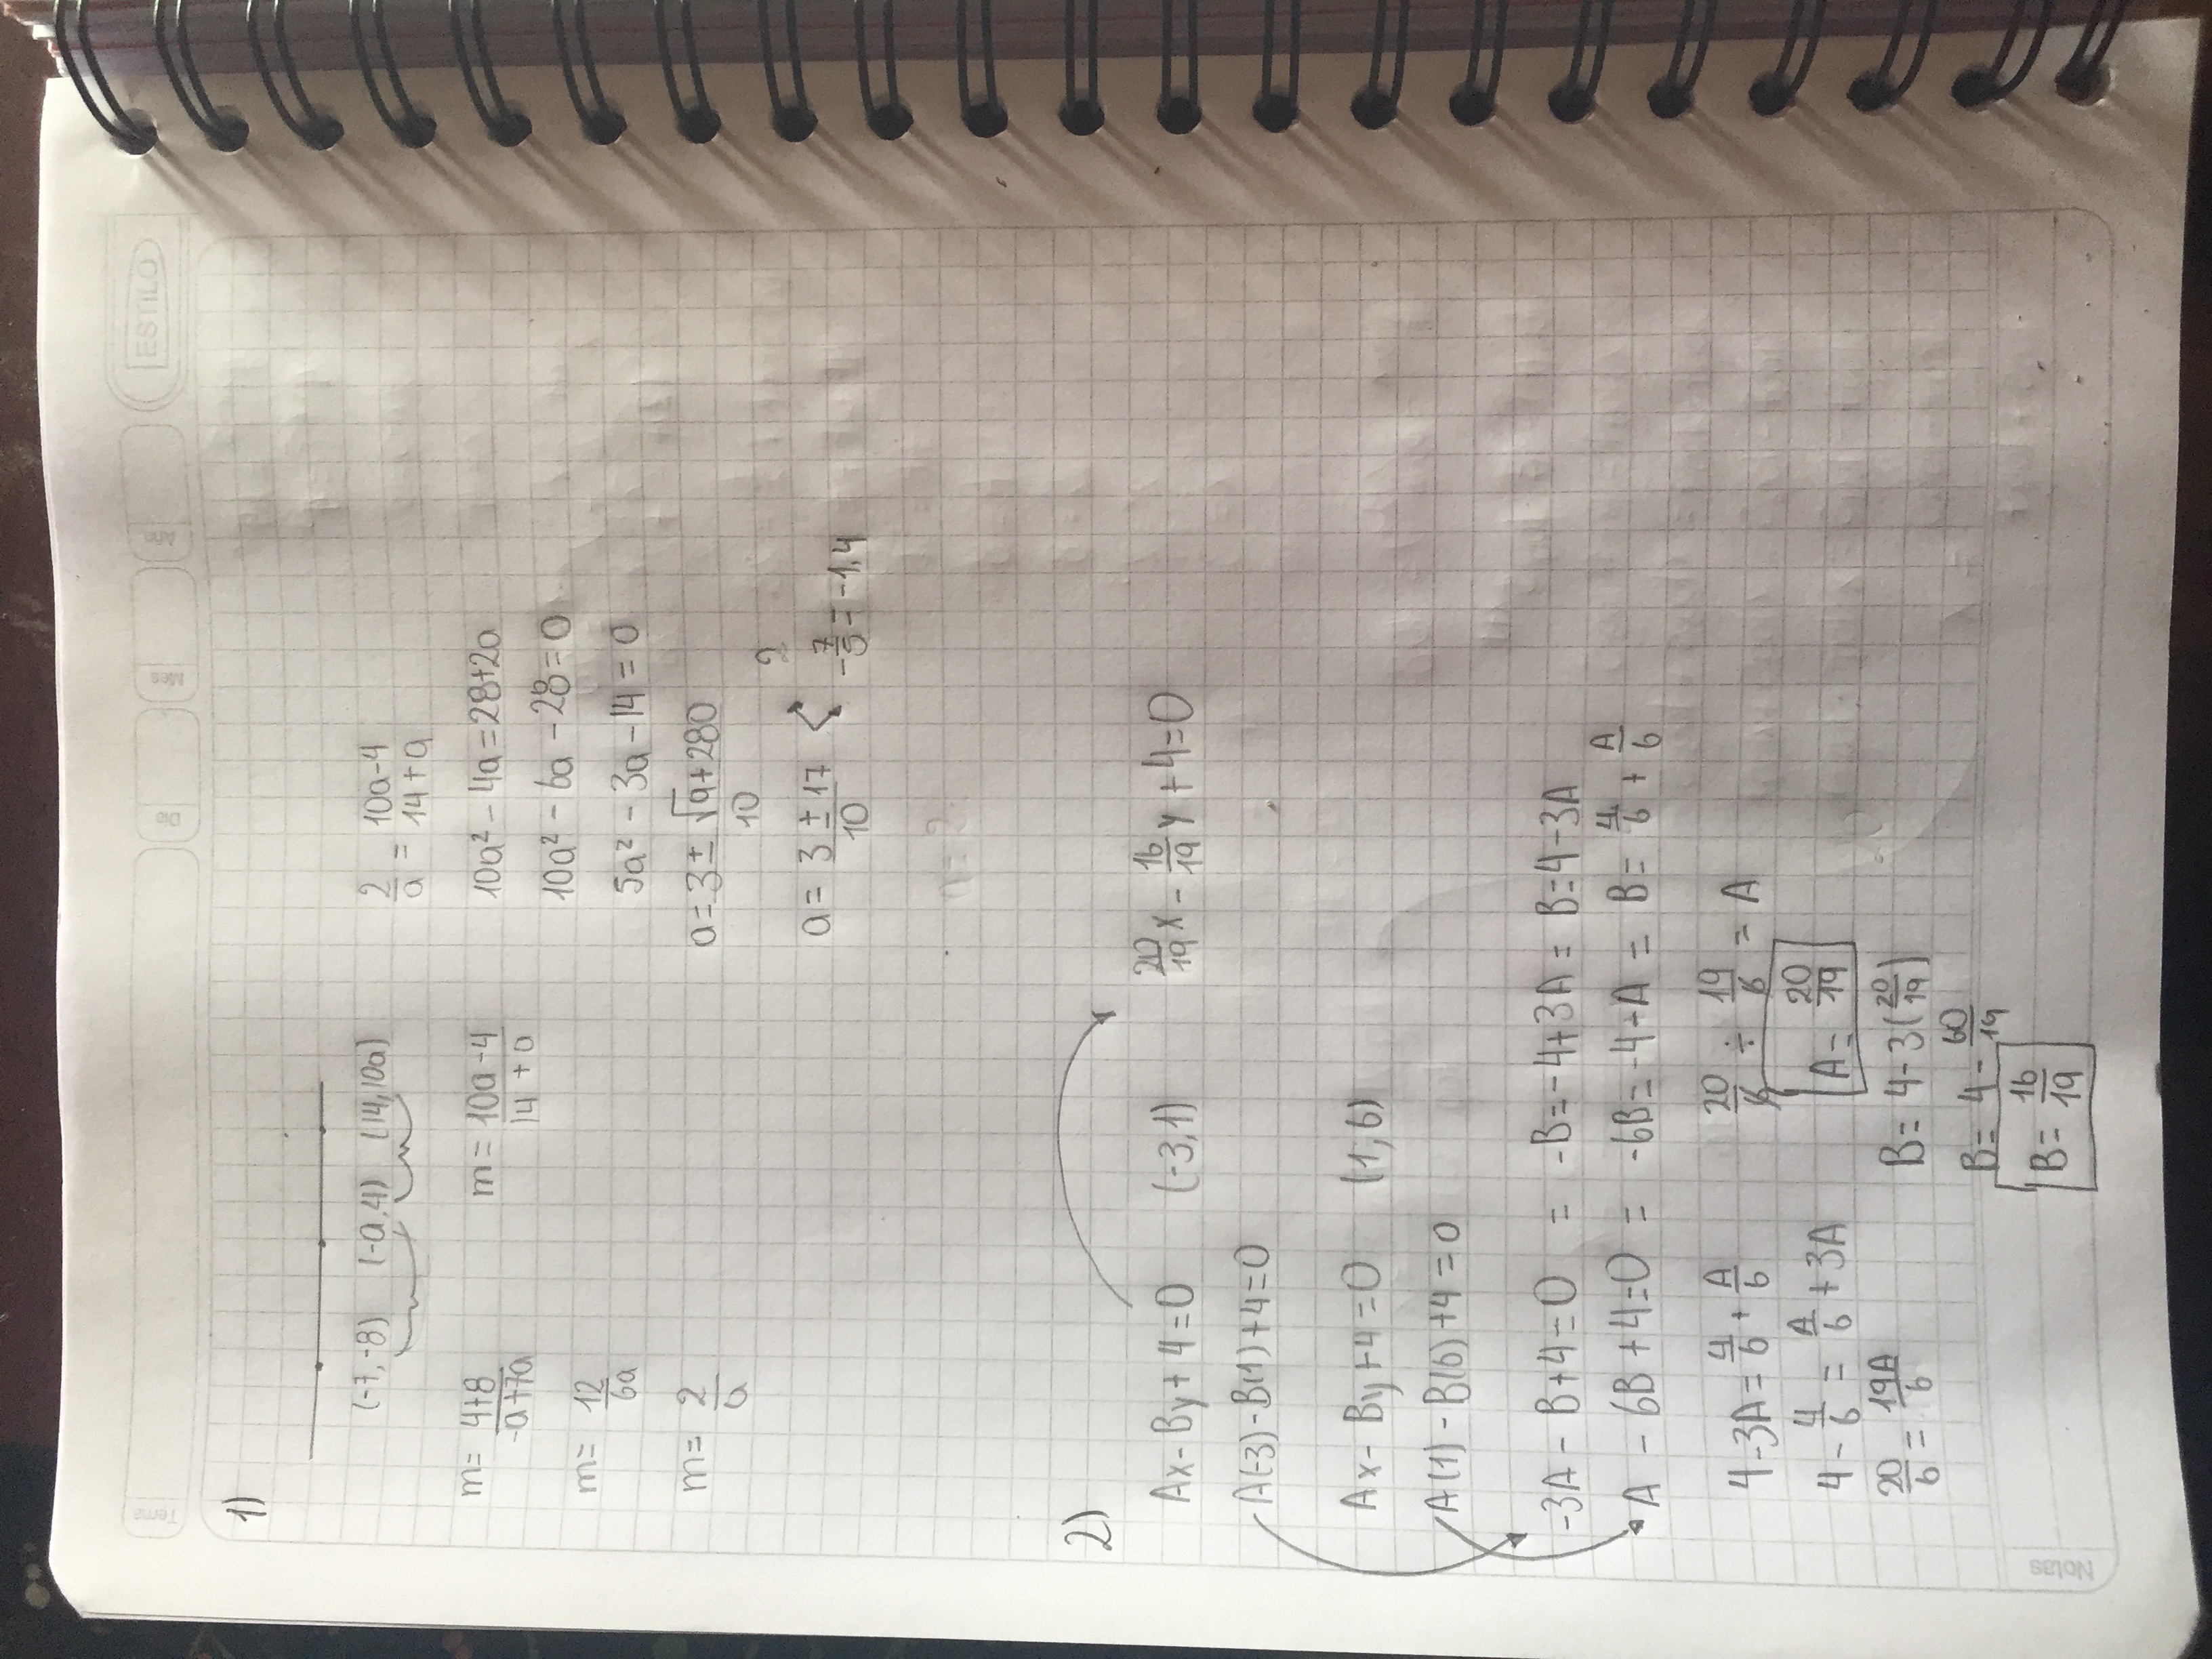 Tema Día Mes Año ESTILO
1)
(-7,-8) (-a,4) (14,10a)
m= 4+8/-a+7a
m= 12/6a
m= 2/a
m= 10a-4/14+a
2/a = 10a-4/14+a
10a² - 4a = 28+2a
10a² - 6a - 28 = 0
5a² - 3a - 14 = 0
a = 3 ± √9+280/10
a = 3 ± 17/10 < 2
-7/5 = -1,4
a = 2
2)
Ax - By + 4 = 0 (-3,1) 20/19x - 16/19y + 4 = 0
A(-3) - B(1) + 4 = 0
Ax - By + 4 = 0 (1,6)
A(1) - B(6) + 4 = 0
-3A - B + 4 = 0 = -B = -4 + 3A = B = 4 - 3A
A - 6B + 4 = 0 = -6B = -4 - A = B = 4/6 + A/6
4 - 3A = 4/6 + A/6
4 - 4/6 = A/6 + 3A
20/6 = 19A/6
20/6 ÷ 19/6 = A
A = 20/19
B = 4 - 3(20/19)
B = 4 - 60/19
B = 16/19
Notas